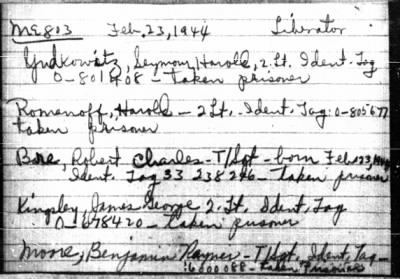 ME803 Feb. 23, 1944 Liberator
Yudkowitz, Seymour Harold, 2. Lt. Ident. Tag
0-801408 - Taken prisoner
Romenoff, Harold - 2 Lt. Ident. Tag: 0-805677
taken prisoner
Robert Charles - T/Sgt - born Feb.
Ident. Tag 33 238 - Taken prisoner
Kingsley, James George 2. Lt. Ident. Tag
0-678420 - taken prisoner
Moore, Benjamin Raymer - T/Sgt. Ident. Tag -
:6000088 - taken Prisoner